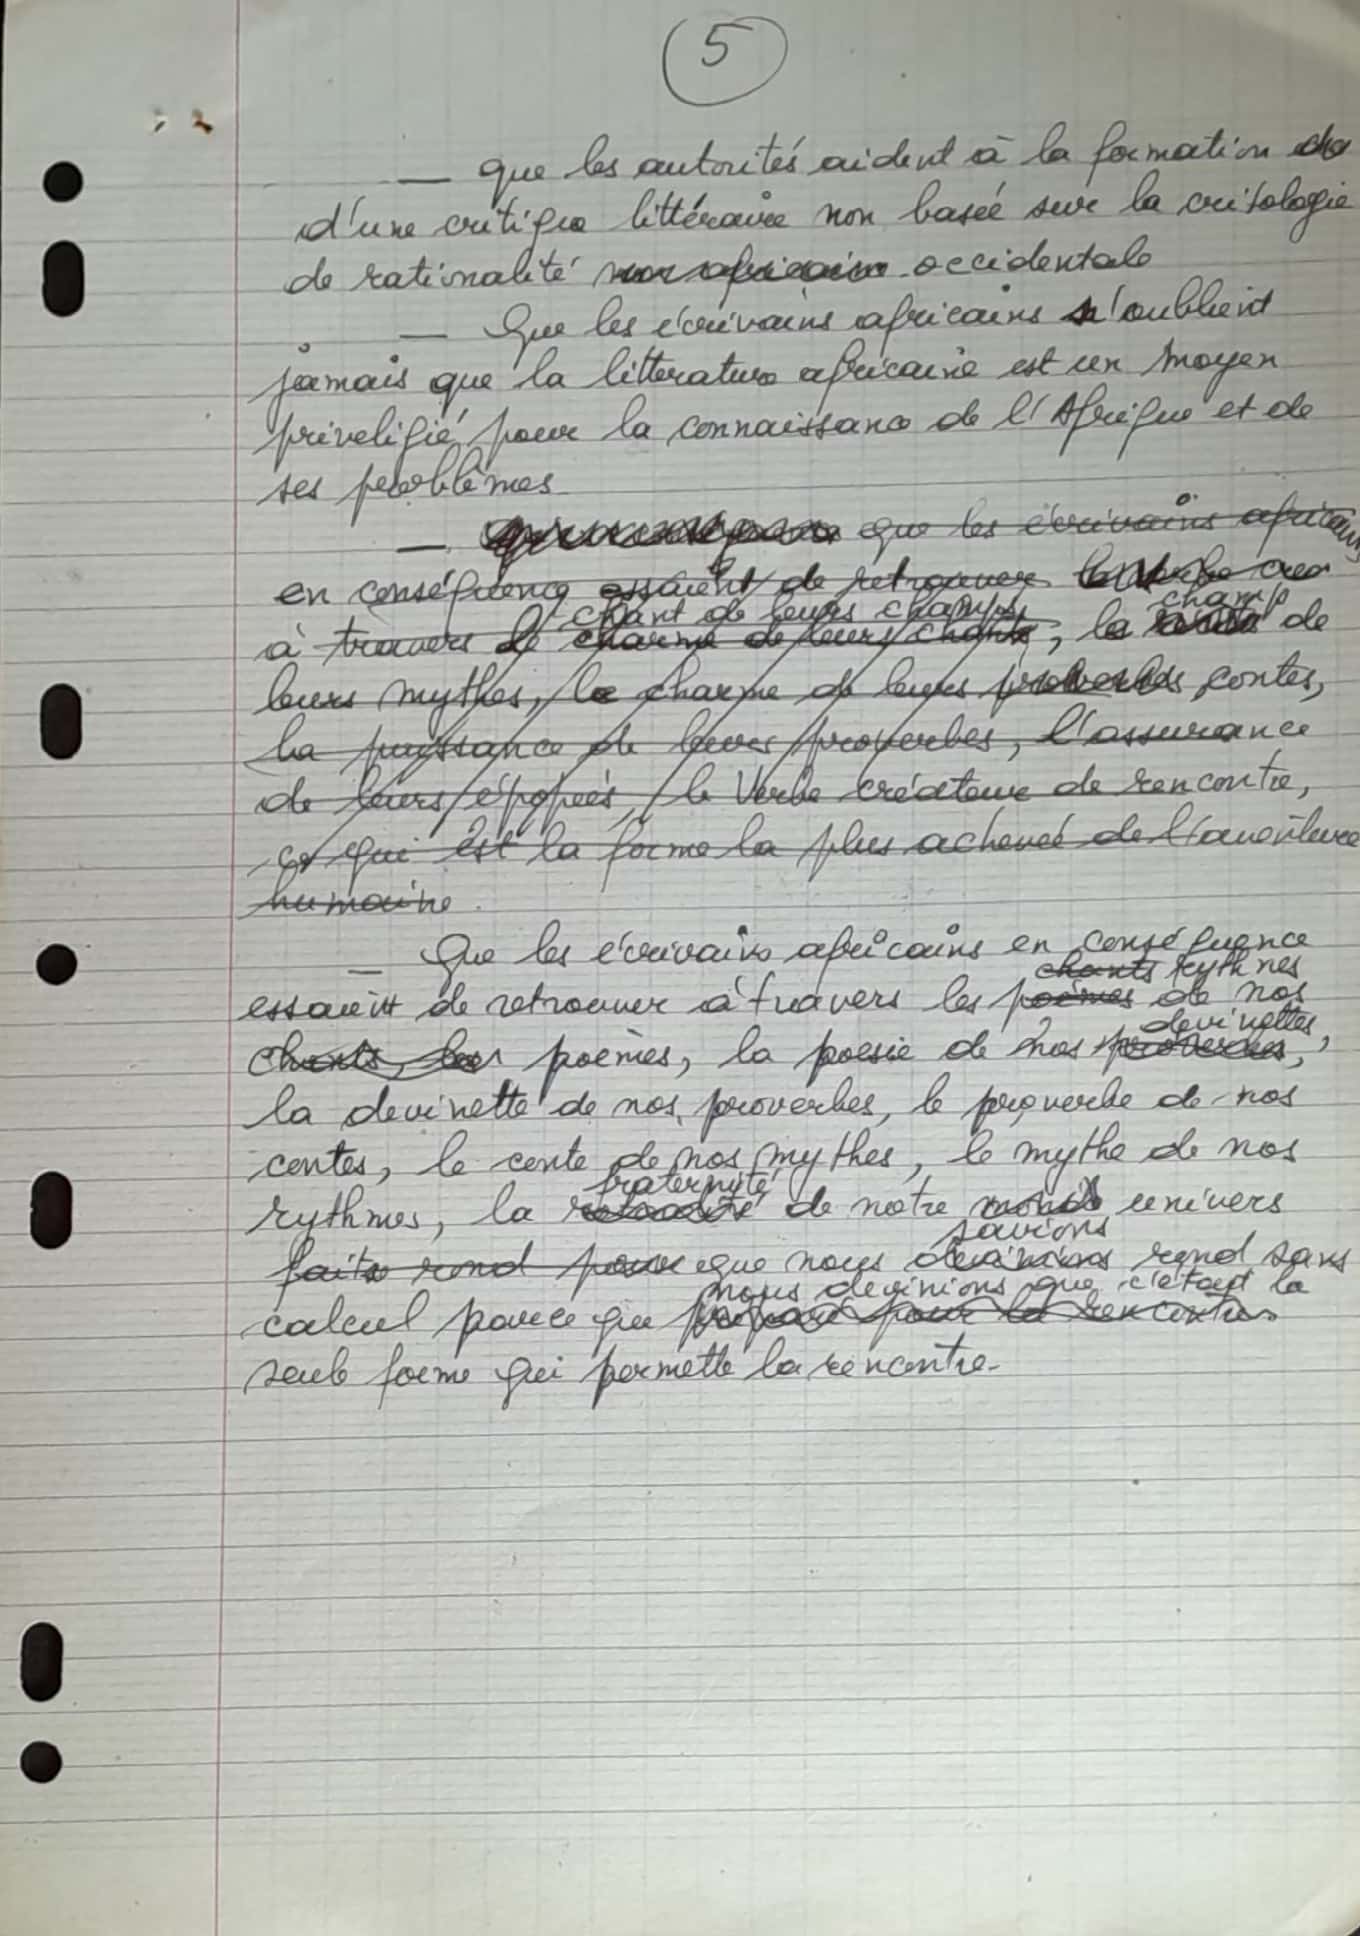 5
— que les autorités aident à la formation
d'une critique littéraire non basée sur la critologie
de rationalité occidentale
— Que les écrivains africains n'oublient
jamais que la litterature africaine est un moyen
priveligié pour la connaissance de l'Afrique et de
ses problèmes
— que les écrivains africains
en conséquence essaient de retrouver
chant de leurs champs champ
à travers le charme de leurs chants, le de
leurs mythes, le charme de leurs proverbes contes,
la puissance de leurs proverbes, l'assurance
de leurs épopées, le Verbe créateur de rencontre,
ce qui est la forme la plus achevée de
humaine.
— Que les écrivains africains en conséquence
chants rythmes
essaient de retrouver à travers les poèmes de nos
devinettes,
chants, les poèmes, la poesie de nos proverbes,
la devinette de nos proverbes, le proverbe de nos
contes, le conte de nos mythes, le mythe de nos
fraternité
rythmes, la de notre univers
savions
faits rond pour que nous devinions rond sans
nous devinions que c'était la
calcul parce que pour la rencontre
seule forme qui permette la rencontre.